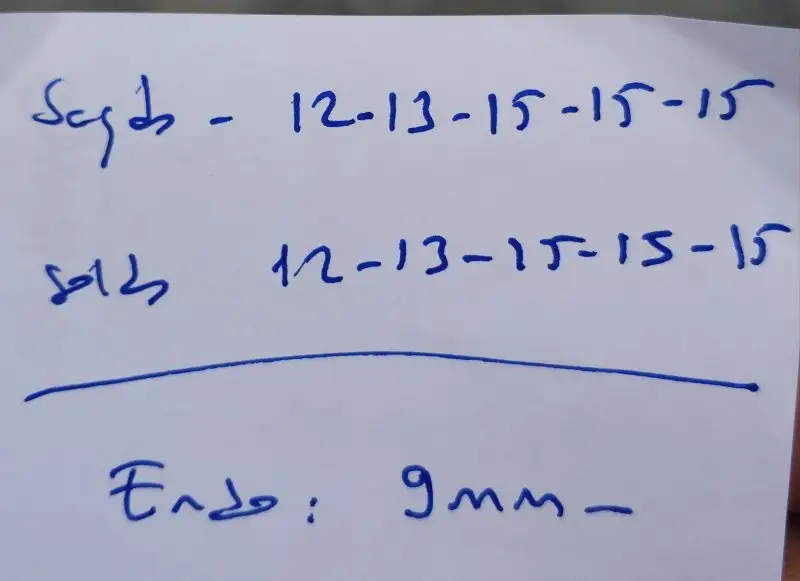 Sağda - 12-13-15-15-15
solda 12-13-15-15-15
Endo: 9mm-